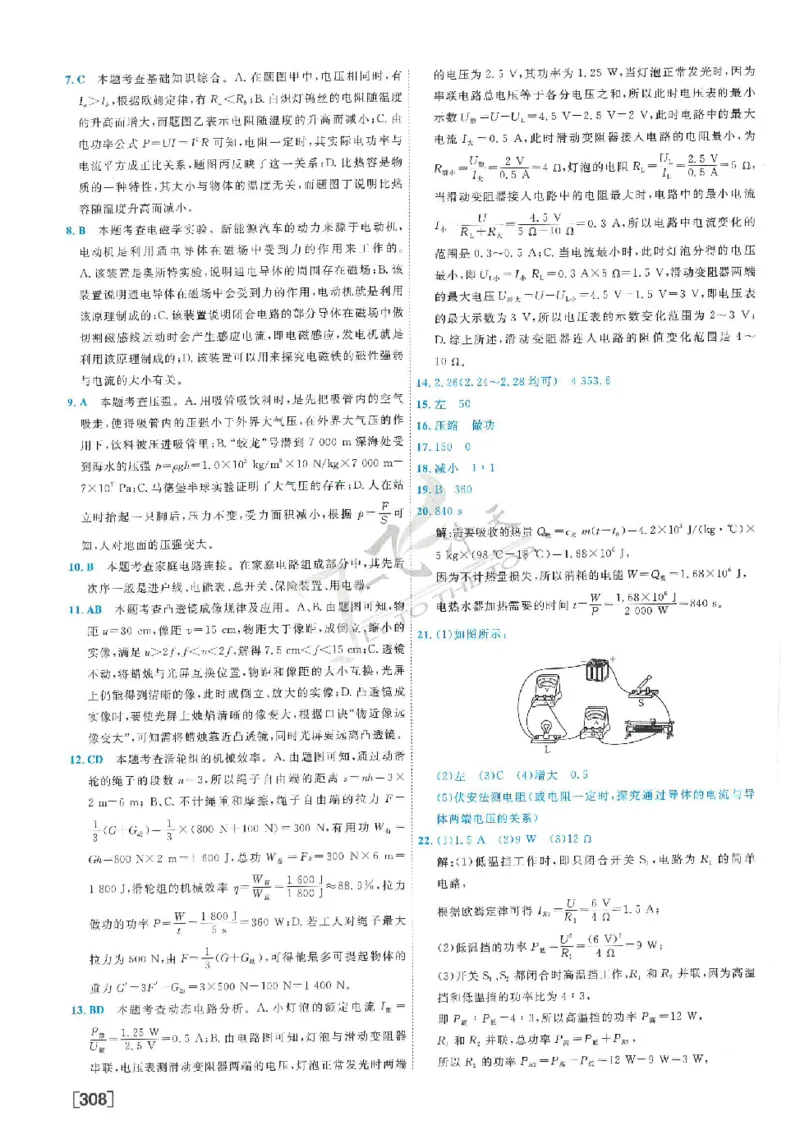 7. C 本题考查基础知识综合。A. 在题图甲中,电压相同时,有
Iₐ>I_b,根据欧姆定律,有 Rₐ<R_b;B. 白炽灯钨丝的电阻随温度
的升高而增大,而题图乙表示电阻随温度的升高而减小;C. 由
电功率公式 P=UI=I²R 可知,电阻一定时,其实际电功率与
电流平方成正比关系,题图丙反映了这一关系;D. 比热容是物
质的一种特性,其大小与物体的温度无关,而题图丁说明比热
容随温度升高而减小。
8. B 本题考查电磁学实验。新能源汽车的动力来源于电动机,
电动机是利用通电导体在磁场中受到力的作用来工作的。
A. 该装置是奥斯特实验,说明通电导体的周围存在磁场;B. 该
装置说明通电导体在磁场中会受到力的作用,电动机就是利用
该原理制成的;C. 该装置说明闭合电路的部分导体在磁场中做
切割磁感线运动时会产生感应电流,即电磁感应,发电机就是
利用该原理制成的;D. 该装置可以用来探究电磁铁的磁性强弱
与电流的大小有关。
9. A 本题考查压强。A. 用吸管吸饮料时,是先把吸管内的空气
吸走,使得吸管内的压强小于外界大气压,在外界大气压的作
用下,饮料被压进吸管里;B. “蛟龙”号潜到 7 000 m 深海处受
到海水的压强 p=ρgh=1.0×10³ kg/m³×10 N/kg×7 000 m=
7×10⁷ Pa;C. 马德堡半球实验证明了大气压的存在;D. 人在站
立时抬起一只脚后,压力不变,受力面积减小,根据 p=F/S 可
知,人对地面的压强变大。
10. B 本题考查家庭电路连接。在家庭电路组成部分中,其先后
次序一般是进户线、电能表、总开关、保险装置、用电器。
11. AB 本题考查凸透镜成像规律及应用。A、B. 由题图可知,物
距 u=30 cm,像距 v=15 cm,物距大于像距,成倒立、缩小的
实像,满足 u>2f,f<v<2f,解得 7.5 cm<f<15 cm;C. 透镜
不动,将蜡烛与光屏互换位置,物距和像距的大小互换,光屏
上仍能得到清晰的像,此时成倒立、放大的实像;D. 凸透镜成
实像时,要使光屏上烛焰清晰的像变大,根据口诀“物近像远
像变大”,可知需将蜡烛靠近凸透镜,同时光屏要远离凸透镜。
12. CD 本题考查滑轮组的机械效率。A. 由题图可知,通过动滑
轮的绳子的段数 n=3,所以绳子自由端的距离 s=nh=3×
2 m=6 m;B、C. 不计绳重和摩擦,绳子自由端的拉力 F=
1/3(G+G动)=1/3×(800 N+100 N)=300 N,有用功 W有=
Gh=800 N×2 m=1 600 J,总功 W总=Fs=300 N×6 m=
1 800 J,滑轮组的机械效率 η=W有/W总=1 600 J/1 800 J≈88.9%,拉力
做功的功率 P=W/t=1 800 J/5 s=360 W;D. 若工人对绳子最大
拉力为 500 N,由 F=1/3(G+G动),可得他最多可提起物体的
重力 G′=3F′−G动=3×500 N−100 N=1 400 N。
13. BD 本题考查动态电路分析。A. 小灯泡的额定电流 I额=
P额/U额=1.25 W/2.5 V=0.5 A;B. 由电路图可知,灯泡与滑动变阻器
串联,电压表测滑动变阻器两端的电压,灯泡正常发光时两端
[308]
的电压为 2.5 V,其功率为 1.25 W,当灯泡正常发光时,因为
串联电路总电压等于各分电压之和,所以此时电压表的最小
示数 U滑=U−U_L=4.5 V−2.5 V=2 V,此时电路中的最大
电流 I大=0.5 A,此时滑动变阻器接入电路的电阻最小,为
R滑小=U滑/I大=2 V/0.5 A=4 Ω,灯泡的电阻 R_L=U_L/I_L=2.5 V/0.5 A=5 Ω,
当滑动变阻器接入电路中的电阻最大时,电路中的最小电流
I小=U/(R_L+R大)=4.5 V/(5 Ω+10 Ω)=0.3 A,所以电路中电流变化的
范围是 0.3~0.5 A;C. 当电流最小时,此时灯泡分得的电压
最小,即 U_L小=I小R_L=0.3 A×5 Ω=1.5 V,滑动变阻器两端
的最大电压 U滑大=U−U_L小=4.5 V−1.5 V=3 V,即电压表
的最大示数为 3 V,所以电压表的示数变化范围为 2~3 V;
D. 综上所述,滑动变阻器连入电路的阻值变化范围是 4~
10 Ω。
14. 2.26(2.24~2.28 均可) 4 353.6
15. 左 50
16. 压缩 做功
17. 150 0
18. 减小 1∶1
19. B 360
20. 840 s
解:需要吸收的热量 Q吸=c水m(t−t₀)=4.2×10³ J/(kg·℃)×
5 kg×(98 ℃−18 ℃)=1.68×10⁶ J,
因为不计热量损失,所以消耗的电能 W=Q吸=1.68×10⁶ J,
电热水器加热需要的时间 t=W/P=1.68×10⁶ J/2 000 W=840 s。
21. (1)如图所示:
S
L
(2)左 (3)C (4)增大 0.5
(5)伏安法测电阻(或电阻一定时,探究通过导体的电流与导
体两端电压的关系)
22. (1)1.5 A (2)9 W (3)12 Ω
解:(1)低温挡工作时,即只闭合开关 S₁,电路为 R₁ 的简单
电路,
根据欧姆定律可得 I_R1=U/R₁=6 V/4 Ω=1.5 A;
(2)低温挡的功率 P低=U²/R₁=(6 V)²/4 Ω=9 W;
(3)开关 S₁、S₂ 都闭合时高温挡工作,R₁ 和 R₂ 并联,因为高温
挡和低温挡的功率比为 4∶3,
即 P高∶P低=4∶3,所以高温挡的功率 P高=12 W,
R₁ 和 R₂ 并联,总功率 P高=P低+P_R2,
所以 R₂ 的功率 P_R2=P高−P低=12 W−9 W=3 W,